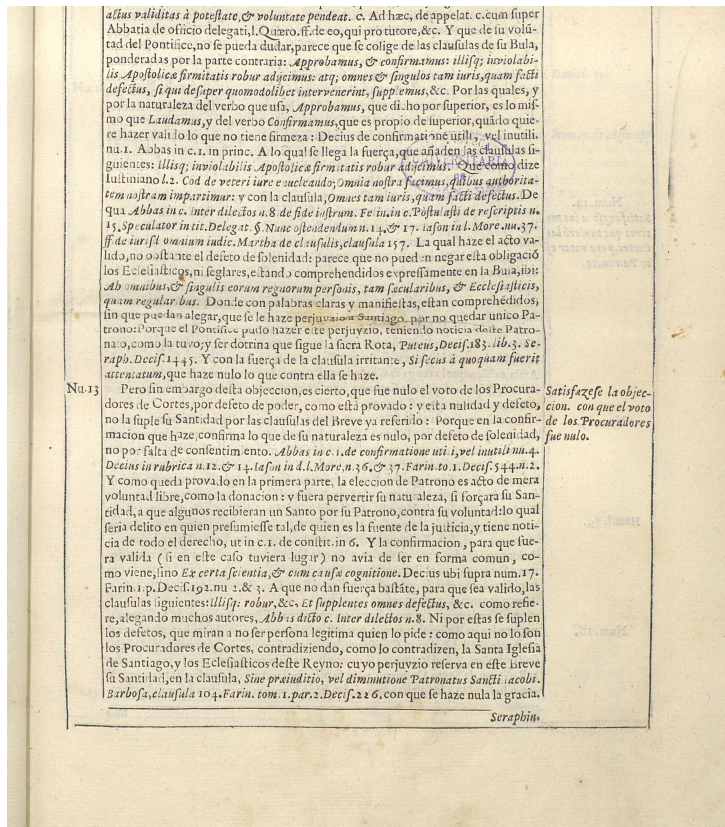 actus validitas à potestate, & voluntate pendeat. c. Ad hæc, de appelat. c. cum super
Abbatia de officio delegati, l. Quæro. ff. de eo, qui pro tutore, &c. Y que de su volũ-
tad del Pontifice, no se pueda dudar, parece que se colige de las clausulas de su Bula,
ponderadas por la parte contraria: Approbamus, & confirmamus: illisq; inviolabi-
lis Apostolicæ firmitatis robur adijcimus: atq; omnes & singulos tam iuris, quam facti
defectus, si qui desuper quomodolibet intervenerint, supplemus, &c. Por las quales, y
por la naturaleza del verbo que usa, Approbamus, que dicho por superior, es lo mis-
mo que Laudamus, y del verbo Confirmamus, que es propio de superior, quãdo quie-
re hazer valido lo que no tiene firmeza: Decius de confirmatione utili, vel inutili.
nu. 1. Abbas in c. 1. in princ. A lo qual se llega la fuerça, que añaden las clausulas si-
guientes: Illisq; inviolabilis Apostolicæ firmitatis robur adijcimus. Que como dize
Iustiniano l. 2. Cod de veteri iure enucleando; Omnia nostra facimus, quibus authorita-
tem nostram impartimur: y con la clausula, Omnes tam iuris, quam facti defectus. De
qua Abbas in c. Inter dilectos n. 8. de fide instrum. Felin. in c. Postulasti de rescriptis n.
15. Speculator in tit. Delegat. §. Nunc ostendendum n. 14. & 17. Iason in l. More. nu. 37.
ff. de iurisd. omnium iudic. Martha de clausulis, clausula 157. La qual haze el acto va-
lido, no obstante el defeto de solenidad: parece que no puedan negar esta obligació
los Ecclesiasticos, ni seglares, estando comprehendidos expressamente en la Bula, ibi:
Ab omnibus, & singulis eorum regnorum personis, tam sæcularibus, & Ecclesiasticis,
quam regularibus. Donde con palabras claras y manifiestas, estan comprehẽdidos,
sin que puedan alegar, que se le haze perjuyzio a Santiago, por no quedar unico Pa-
trono: Porque el Pontifice pudo hazer este perjuyzio, teniendo noticia deste Patro-
nato, como la tuvo; y ser dotrina que sigue la sacra Rota, Puteus, Decis. 183. lib. 3. Se-
raph. Decis. 1445. Y con la fuerça de la clausula irritante, Si secus à quoquam fuerit
attentatum, que haze nulo lo que contra ella se haze.
Nu. 13 Pero sin embargo desta objeccion, es cierto, que fue nulo el voto de los Procura-
dores de Cortes, por defeto de poder, como està provado: y esta nulidad y defeto,
no la suple su Santidad por las clausulas del Breve ya referido: Porque en la confir-
macion que haze, confirma lo que de su naturaleza es nulo, por defeto de solenidad,
no por falta de consentimiento. Abbas in c. 1. de confirmatione utili, vel inutili nu. 4.
Decius in rubrica n. 12. & 14. Iason in d. l. More, n. 36. & 37. Farin. to. 1. Decis. 544. n. 2.
Y como queda provado en la primera parte, la eleccion de Patrono es acto de mera
voluntad libre, como la donacion: y fuera pervertir su naturaleza, si forçara su San-
tidad, a que algunos recibieran un Santo por su Patrono, contra su voluntad: lo qual
seria delito en quien presumiesse tal, de quien es la fuente de la justicia, y tiene noti-
cia de todo el derecho, ut in c. 1. de constit. in 6. Y la confirmacion, para que sue-
ra valida (si en este caso tuviera lugar) no avia de ser en forma comun, co-
mo viene, sino Ex certa scientia, & cum causæ cognitione. Decius ubi supra num. 17.
Farin. 1. p. Decis. 192. nu 2. & 3. A que no dan fuerça bastãte, para que sea valido, las
clausulas siguientes: Illisq: robur, &c. Et supplentes omnes defectus, &c. como refie-
re, alegando muchos autores, Abbas dicto c. Inter dilectos n. 8. Ni por estas se suplen
los defetos, que miran a no ser persona legitima quien lo pide: como aqui no lo son
los Procuradores de Cortes, contradiziendo, como lo contradizen, la Santa Iglesia
de Santiago, y los Eclesiasticos deste Reyno: cuyo perjuyzio reserva en este Breve
su Santidad, en la clausula, Sine præiuditio, vel diminutione Patronatus Sancti Iacobi.
Barbosa, clausula 104. Farin. tom. 1. par. 2. Decis. 226. con que se haze nula la gracia.
Seraphin.
Satisfazese la objec-
cion. con que el voto
de los Procuradores
fue nulo.